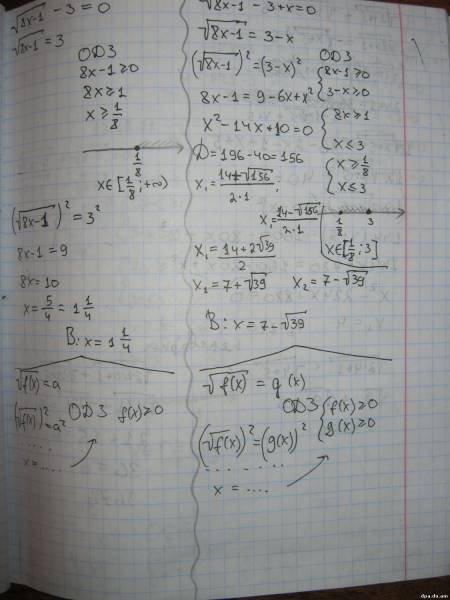 √8x-1 - 3 = 0
√8x-1 = 3
ОДЗ
8x-1 ≥ 0
8x ≥ 1
x ≥ 1/8
1/8
x∈[1/8; +∞)
(√8x-1)² = 3²
8x-1 = 9
8x = 10
x = 5/4 = 1 1/4
В: x = 1 1/4
√f(x) = a
(√f(x))² = a²
ОДЗ f(x) ≥ 0
....
x = ....
√8x-1 - 3 + x = 0
√8x-1 = 3-x
(√8x-1)² = (3-x)²
ОДЗ
{8x-1 ≥ 0
3-x ≥ 0
8x-1 = 9-6x+x²
{8x ≥ 1
x ≤ 3
x²-14x+10 = 0
D = 196-40 = 156
{x ≥ 1/8
x ≤ 3
x₁ = 14+√156 / 2·1;
x₁ = 14-√156 / 2·1
1/8 3
x∈[1/8; 3]
x₁ = 14+2√39 / 2
x₁ = 7+√39 x₂ = 7-√39
В: x = 7-√39
√f(x) = g(x)
ОДЗ {f(x) ≥ 0
g(x) ≥ 0
(√f(x))² = (g(x))²
.......
x = ....
dpa.do.am